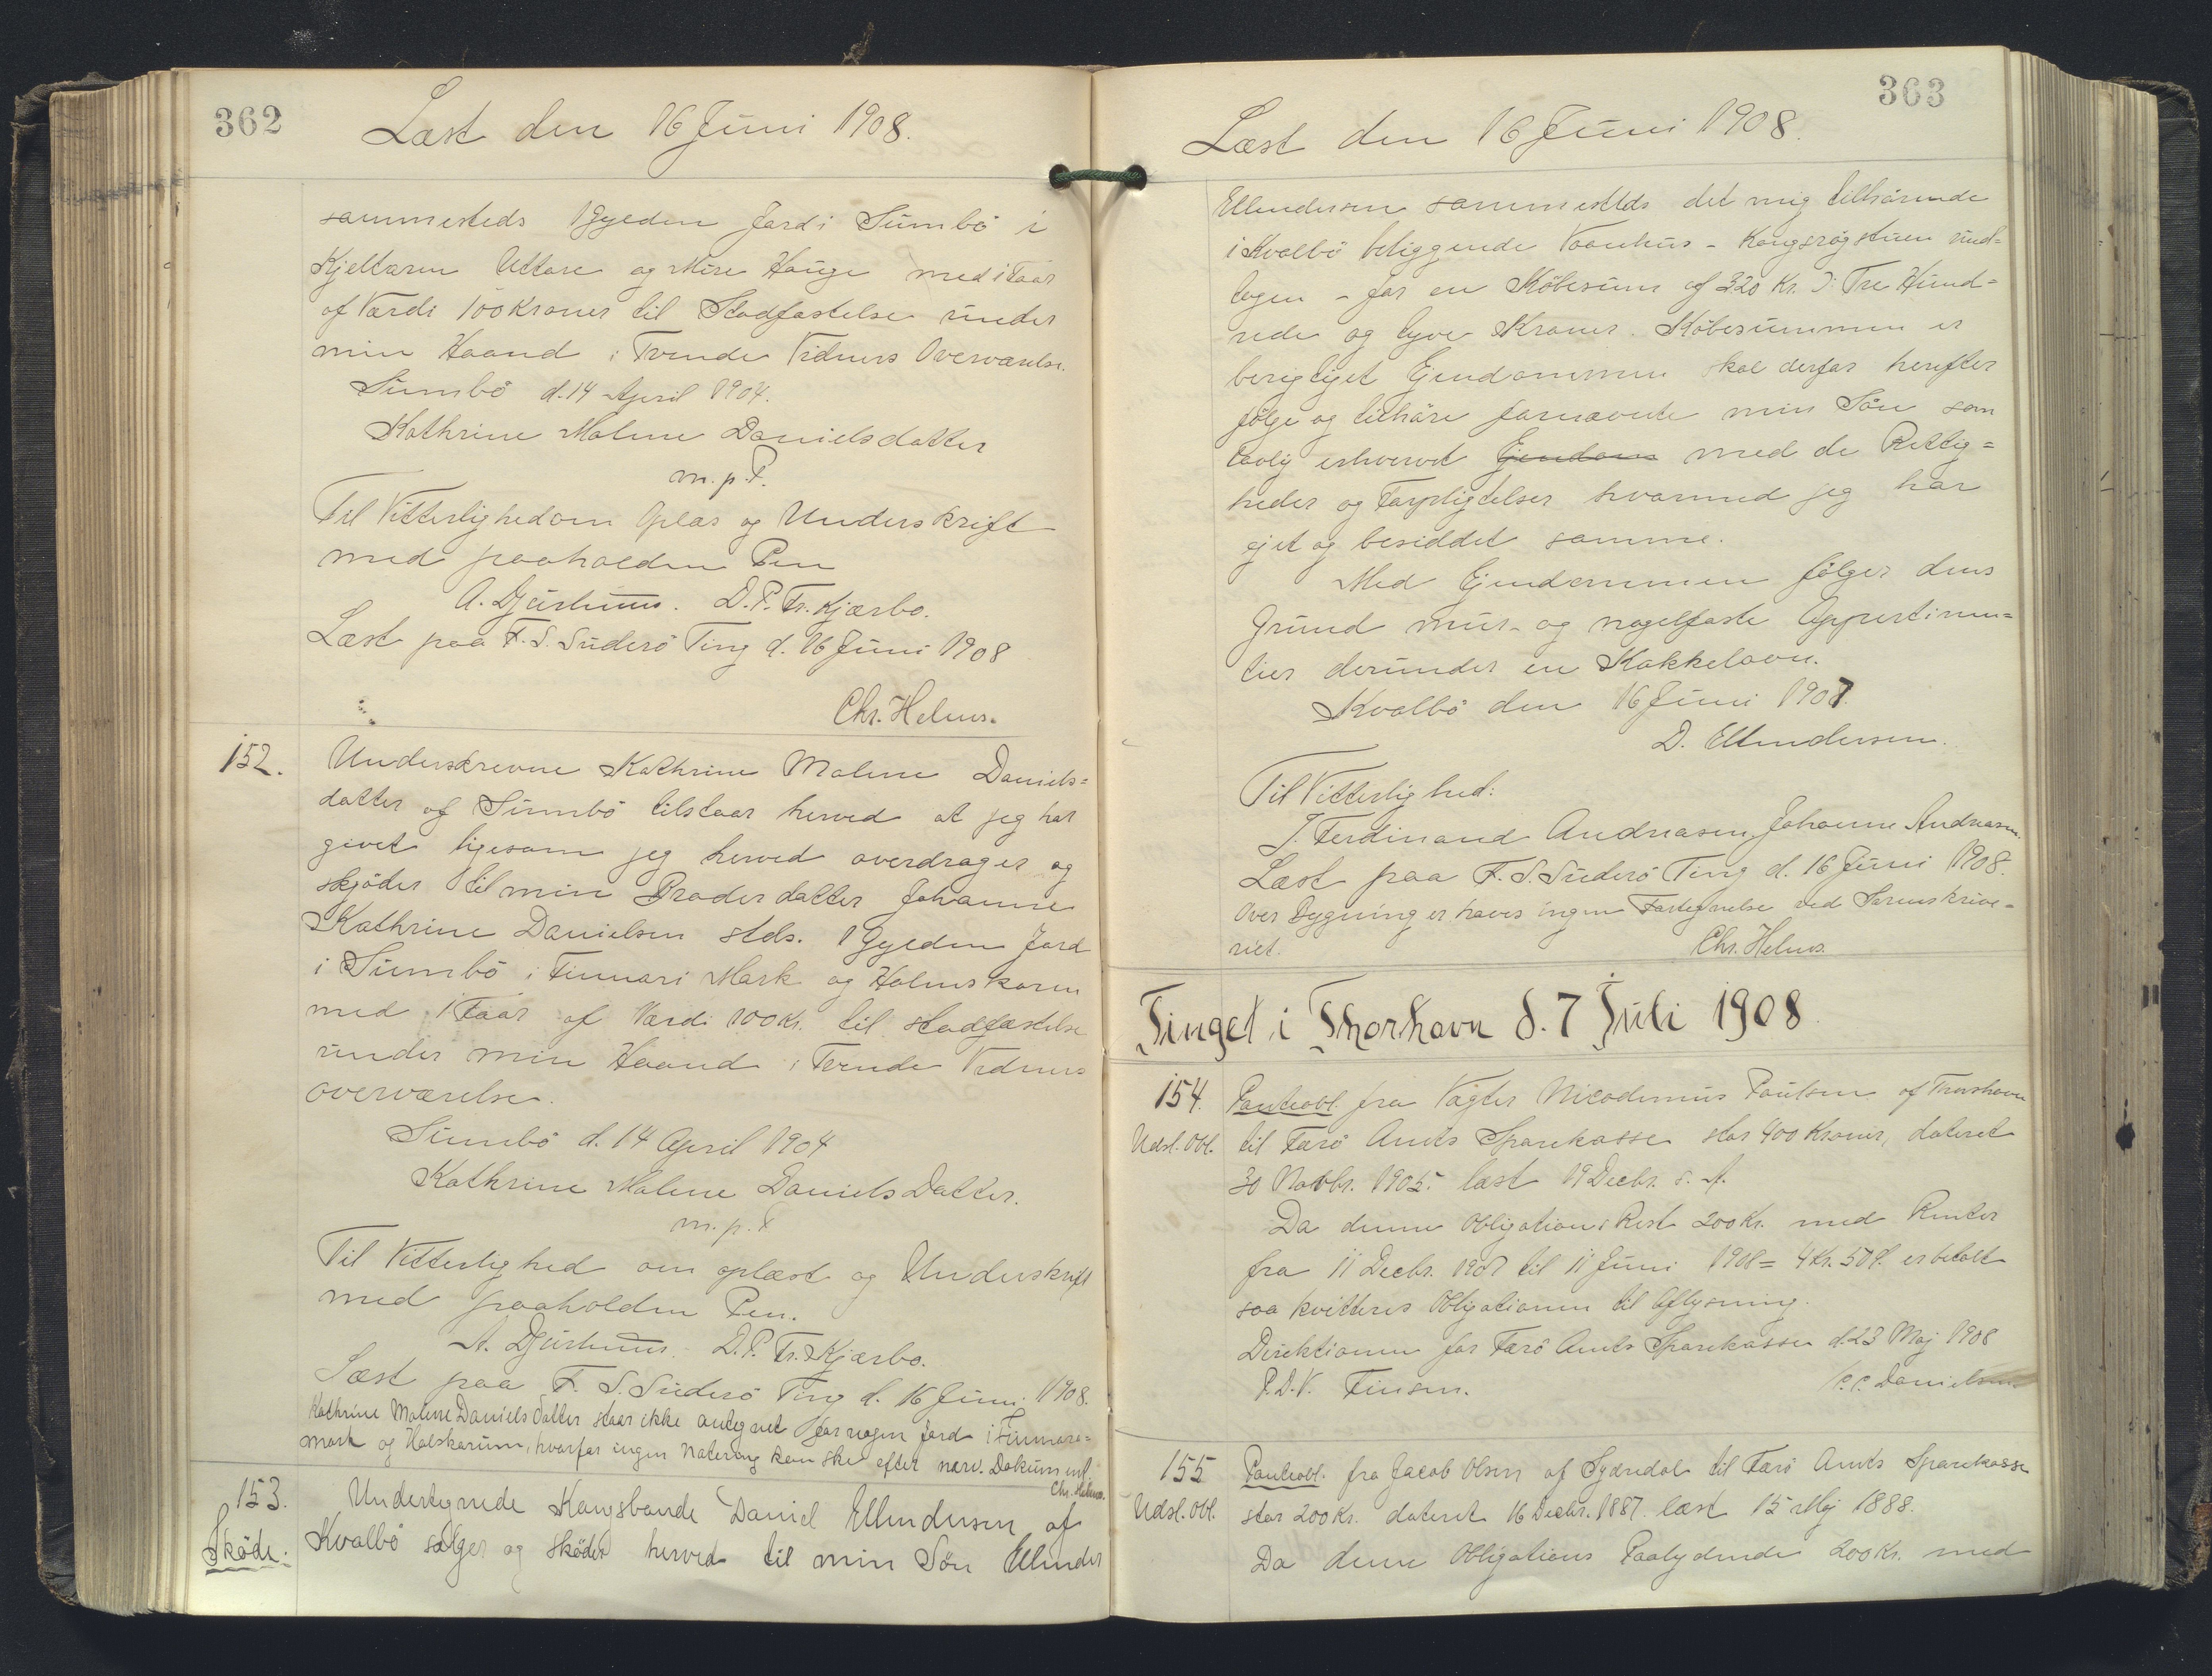 362
Læst den 16 Juni 1908.
sammesteds 1 Gylden Jord i Sumbö i
Kjeltaren Uttare og Mire Hauge med i Faar
af Værdi 100 Kroner til Stadfæstelse under
min Haand i Tvende Vidners Overværelse.
Sumbö d. 14 April 1904.
Kathrine Malene Danielsdatter
m. p. P.
Til Vitterlighedom Oplæs og Underskrift
med paaholden Pen
A. Djurhuus. D. P. Fr. Kjærbo.
Læst paa F. S. Suderö Ting d. 16 Juni 1908
Chr. Helms.
152.
Underskrevne Kathrine Malene Daniels=
datter af Sumbö tilstaar herved at jeg har
givet ligesom jeg herved overdrager og
skjöder til min Broderdatter Johanne
Kathrine Danielsen stds. 1 Gylden Jord
i Sumbö i Finnari Mark og Holmskorum
med 1 Faar af Værdi 100 Kr. til stadfæstelse
under min Haand i Tvende Vidners
overværelse.
Sumbö d. 14 April 1904
Kathrine Malene DanielsDatter.
m. p. P
Til Vitterlighed om oplæst og Underskrift
med paaholden Pen.
A. Djurhuus. D. P. Fr. Kjærbo.
Læst paa F. S. Suderö Ting d. 16 Juni 1908.
Kathrine Malene Danielsdatter staar ikke antegnet for nogen Jord i Finnara=
mark og Halskorum, hvorfor ingen Notering kan ske efter nærv. Dokument.
Chr. Helms.
153.
Skøde.
Undertegnede Kongsbonde Daniel Ellendersen af
Kvalbö sælger og skøder herved til min Søn Ellender
363
Læst den 16 Juni 1908.
Ellendersen sammestds det mig tilhörende
i Kvalbö beliggende Vaanhus - Kongsrøgstuen und=
tagen - for en Köbesum af 320 Kr. ɔ: Tre Hund=
rede og tyve Kroner. Köbesummen er
berigtiget Ejendommen skal derfor herefter
fölge og tilhöre fornævnte min Sön som
lovlig erhvervet Ejendom med de Rettig=
heder og Forpligtelser hvormed jeg har
ejet og besiddet samme.
Med Ejendommen fölger dens
Grund mur- og nagelfaste Appertinen=
tier derunder en Kakkelovn.
Kvalbö den 16 Juni 1907.
D. Ellendersen.
Til Vitterlighed:
J. Ferdinand Andreasen, Johanne Andreasen.
Læst paa F. S. Suderö Ting d. 16 Juni 1908.
Over Bygninger haves ingen Fortegnelse ved Sorenskrive=
riet.
Chr. Helms.
Tinget i Thorhavn d. 7 Juli 1908.
154.
Udsl. Obl.
Panteobl. fra Vægter Nicodemus Poulsen af Thorshavn
til Færö Amts Sparekasse stor 400 Kroner, dateret
30 Novbr. 1905. læst 19 Decbr. s. A.
Da denne Obligations Rest 200 Kr. med Renter
fra 11 Decbr. 1907 til 11 Juni 1908 = 4 Kr. 50 Ø. er betalt
saa kvitteres Obligationen til Aflysning.
Direktionen for Færö Amts Sparekasse d. 23 Maj 1908
P. D. V. Finsen.
P. C. Danielsen
155
Udsl. Obl.
Panteobl. fra Jacob Olsen af Sydredal til Færö Amts Sparekasse
stor 200 Kr. dateret 16 Decbr. 1887. læst 15 Maj 1888.
Da denne Obligations Paalydende 200 Kr. med